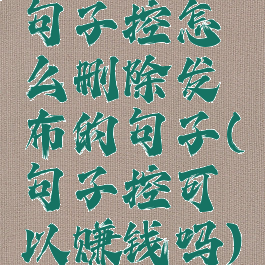 句子控怎
么删除发
布的句子(
句子控可
以赚钱吗)